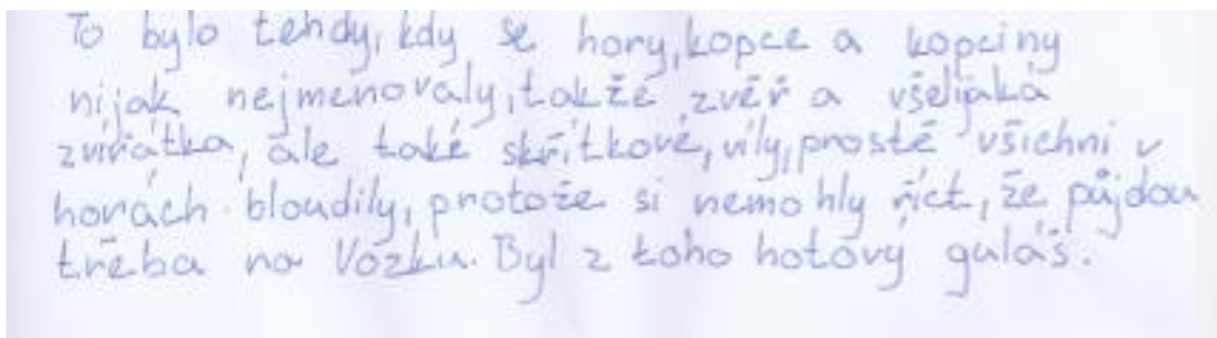 To bylo tehdy, kdy se hory, kopce a kopciny
nijak nejmenovaly, takže zvěř a všelijaká
zvířátka, ale také skřítkové, víly, prostě všichni v
horách bloudily, protože si nemohly říct, že půjdou
třeba na Vozku. Byl z toho hotový guláš.